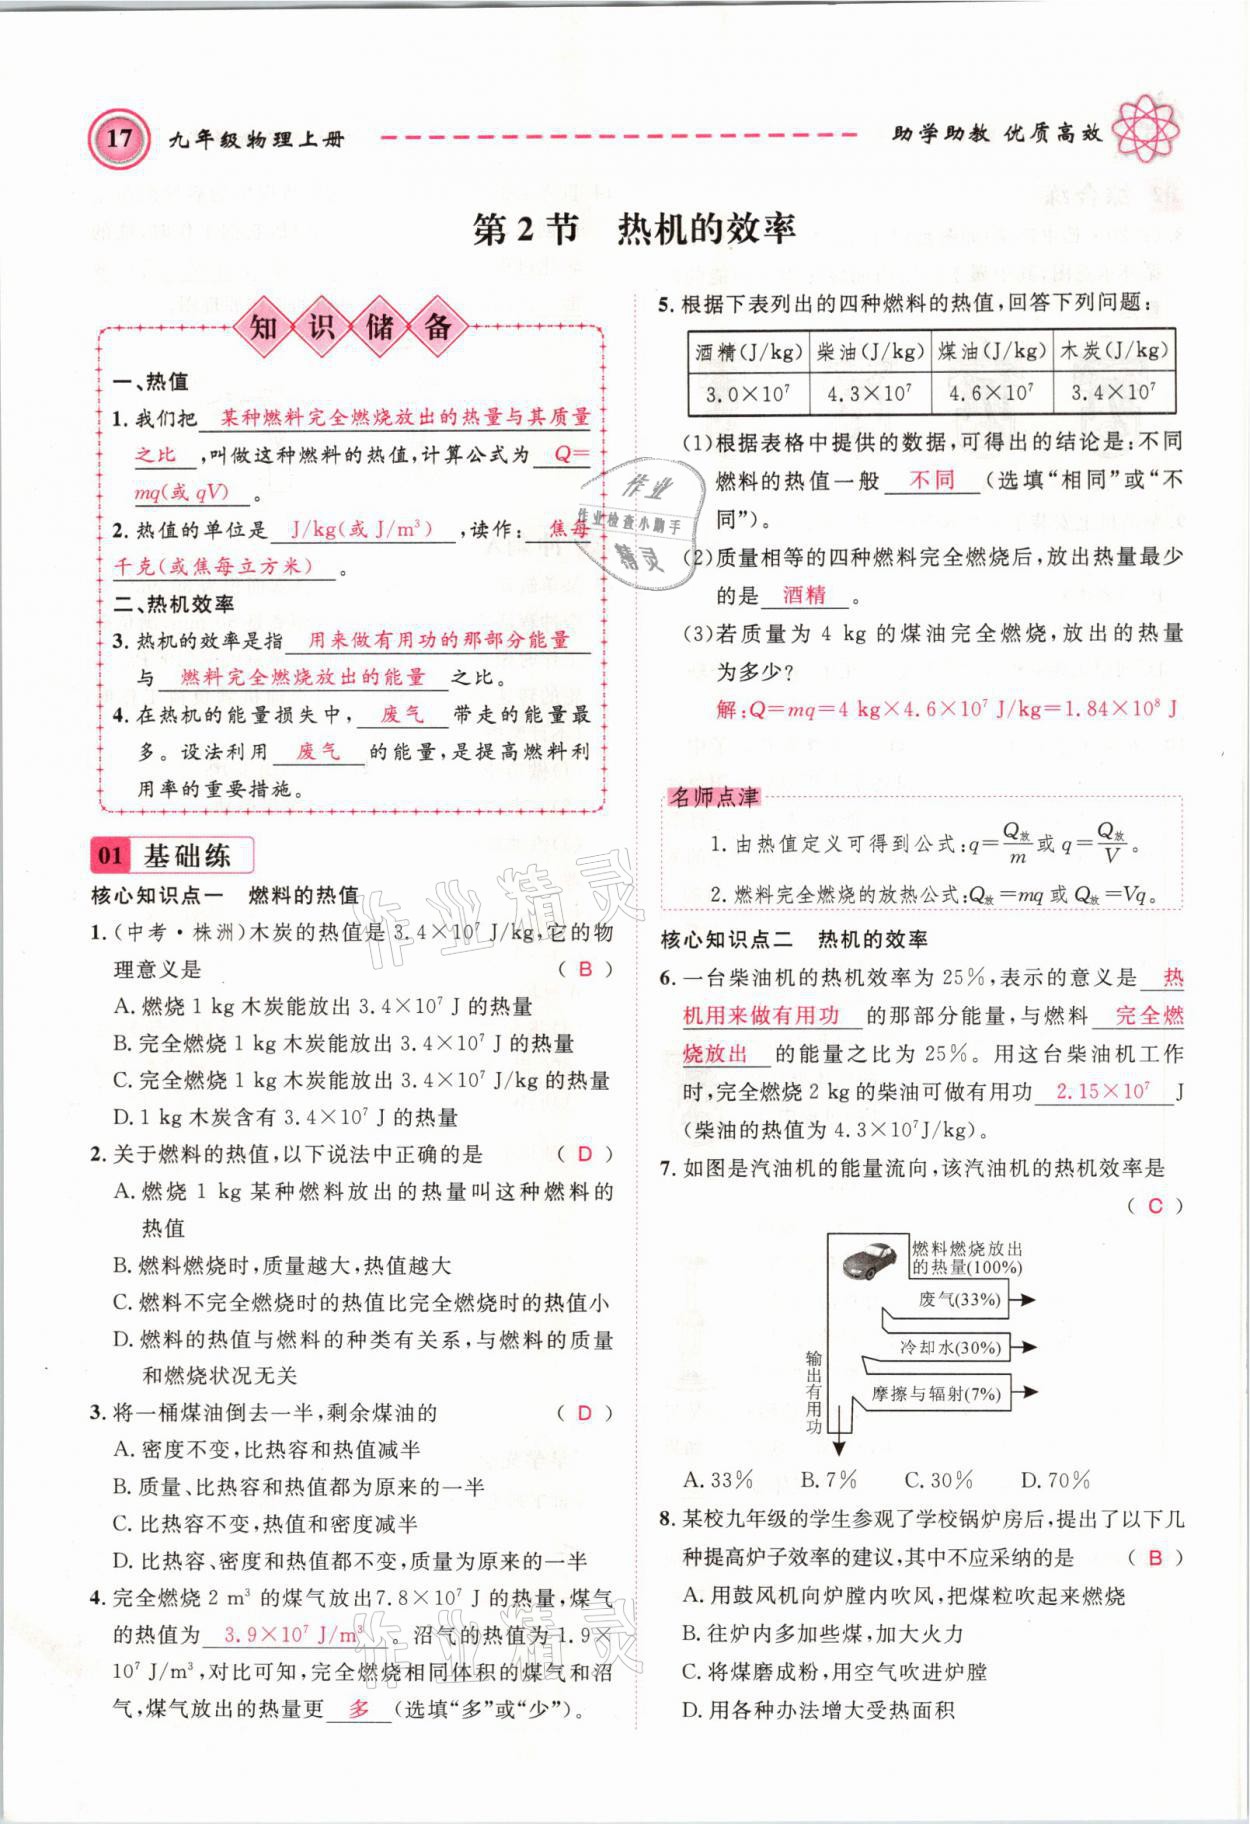 17 九年级物理上册
助学助教 优质高效
第2节 热机的效率
知识储备
一、热值
1.我们把 某种燃料完全燃烧放出的热量与其质量
之比 ,叫做这种燃料的热值,计算公式为 Q=
mq(或 qV) 。
2.热值的单位是 J/kg(或 J/m³) ,读作: 焦每
千克(或焦每立方米) 。
二、热机效率
3.热机的效率是指 用来做有用功的那部分能量
与 燃料完全燃烧放出的能量 之比。
4.在热机的能量损失中, 废气 带走的能量最
多。设法利用 废气 的能量,是提高燃料利
用率的重要措施。
01 基础练
核心知识点一 燃料的热值
1.(中考·株洲)木炭的热值是 3.4×10⁷ J/kg,它的物
理意义是 ( B )
A.燃烧 1 kg 木炭能放出 3.4×10⁷ J 的热量
B.完全燃烧 1 kg 木炭能放出 3.4×10⁷ J 的热量
C.完全燃烧 1 kg 木炭能放出 3.4×10⁷ J/kg 的热量
D.1 kg 木炭含有 3.4×10⁷ J 的热量
2.关于燃料的热值,以下说法中正确的是 ( D )
A.燃烧 1 kg 某种燃料放出的热量叫这种燃料的
热值
B.燃料燃烧时,质量越大,热值越大
C.燃料不完全燃烧时的热值比完全燃烧时的热值小
D.燃料的热值与燃料的种类有关系,与燃料的质量
和燃烧状况无关
3.将一桶煤油倒去一半,剩余煤油的 ( D )
A.密度不变,比热容和热值减半
B.质量、比热容和热值都为原来的一半
C.比热容不变,热值和密度减半
D.比热容、密度和热值都不变,质量为原来的一半
4.完全燃烧 2 m³ 的煤气放出7.8×10⁷ J 的热量,煤气
的热值为 3.9×10⁷ J/m³ 。沼气的热值为 1.9×
10⁷ J/m³,对比可知,完全燃烧相同体积的煤气和沼
气,煤气放出的热量更 多 (选填“多”或“少”)。
5.根据下表列出的四种燃料的热值,回答下列问题:
酒精(J/kg) 柴油(J/kg) 煤油(J/kg) 木炭(J/kg)
3.0×10⁷ 4.3×10⁷ 4.6×10⁷ 3.4×10⁷
(1)根据表格中提供的数据,可得出的结论是:不同
燃料的热值一般 不同 (选填“相同”或“不
同”)。
(2)质量相等的四种燃料完全燃烧后,放出热量最少
的是 酒精 。
(3)若质量为 4 kg 的煤油完全燃烧,放出的热量
为多少?
解:Q=mq=4 kg×4.6×10⁷ J/kg=1.84×10⁸ J
名师点津
1.由热值定义可得到公式:q=Q放/m或 q=Q放/V。
2.燃料完全燃烧的放热公式:Q放=mq 或 Q放=Vq。
核心知识点二 热机的效率
6.一台柴油机的热机效率为 25%,表示的意义是 热
机用来做有用功 的那部分能量,与燃料 完全燃
烧放出 的能量之比为 25%。用这台柴油机工作
时,完全燃烧 2 kg 的柴油可做有用功 2.15×10⁷ J
(柴油的热值为 4.3×10⁷J/kg)。
7.如图是汽油机的能量流向,该汽油机的热机效率是
( C )
燃料燃烧放出
的热量(100%)
废气(33%)
冷却水(30%)
摩擦与辐射(7%)
输出有用功
A.33% B.7% C.30% D.70%
8.某校九年级的学生参观了学校锅炉房后,提出了以下几
种提高炉子效率的建议,其中不应采纳的是 ( B )
A.用鼓风机向炉膛内吹风,把煤粒吹起来燃烧
B.往炉内多加些煤,加大火力
C.将煤磨成粉,用空气吹进炉膛
D.用各种办法增大受热面积
作业
作业检查小助手
精灵
作业精灵
作业精灵